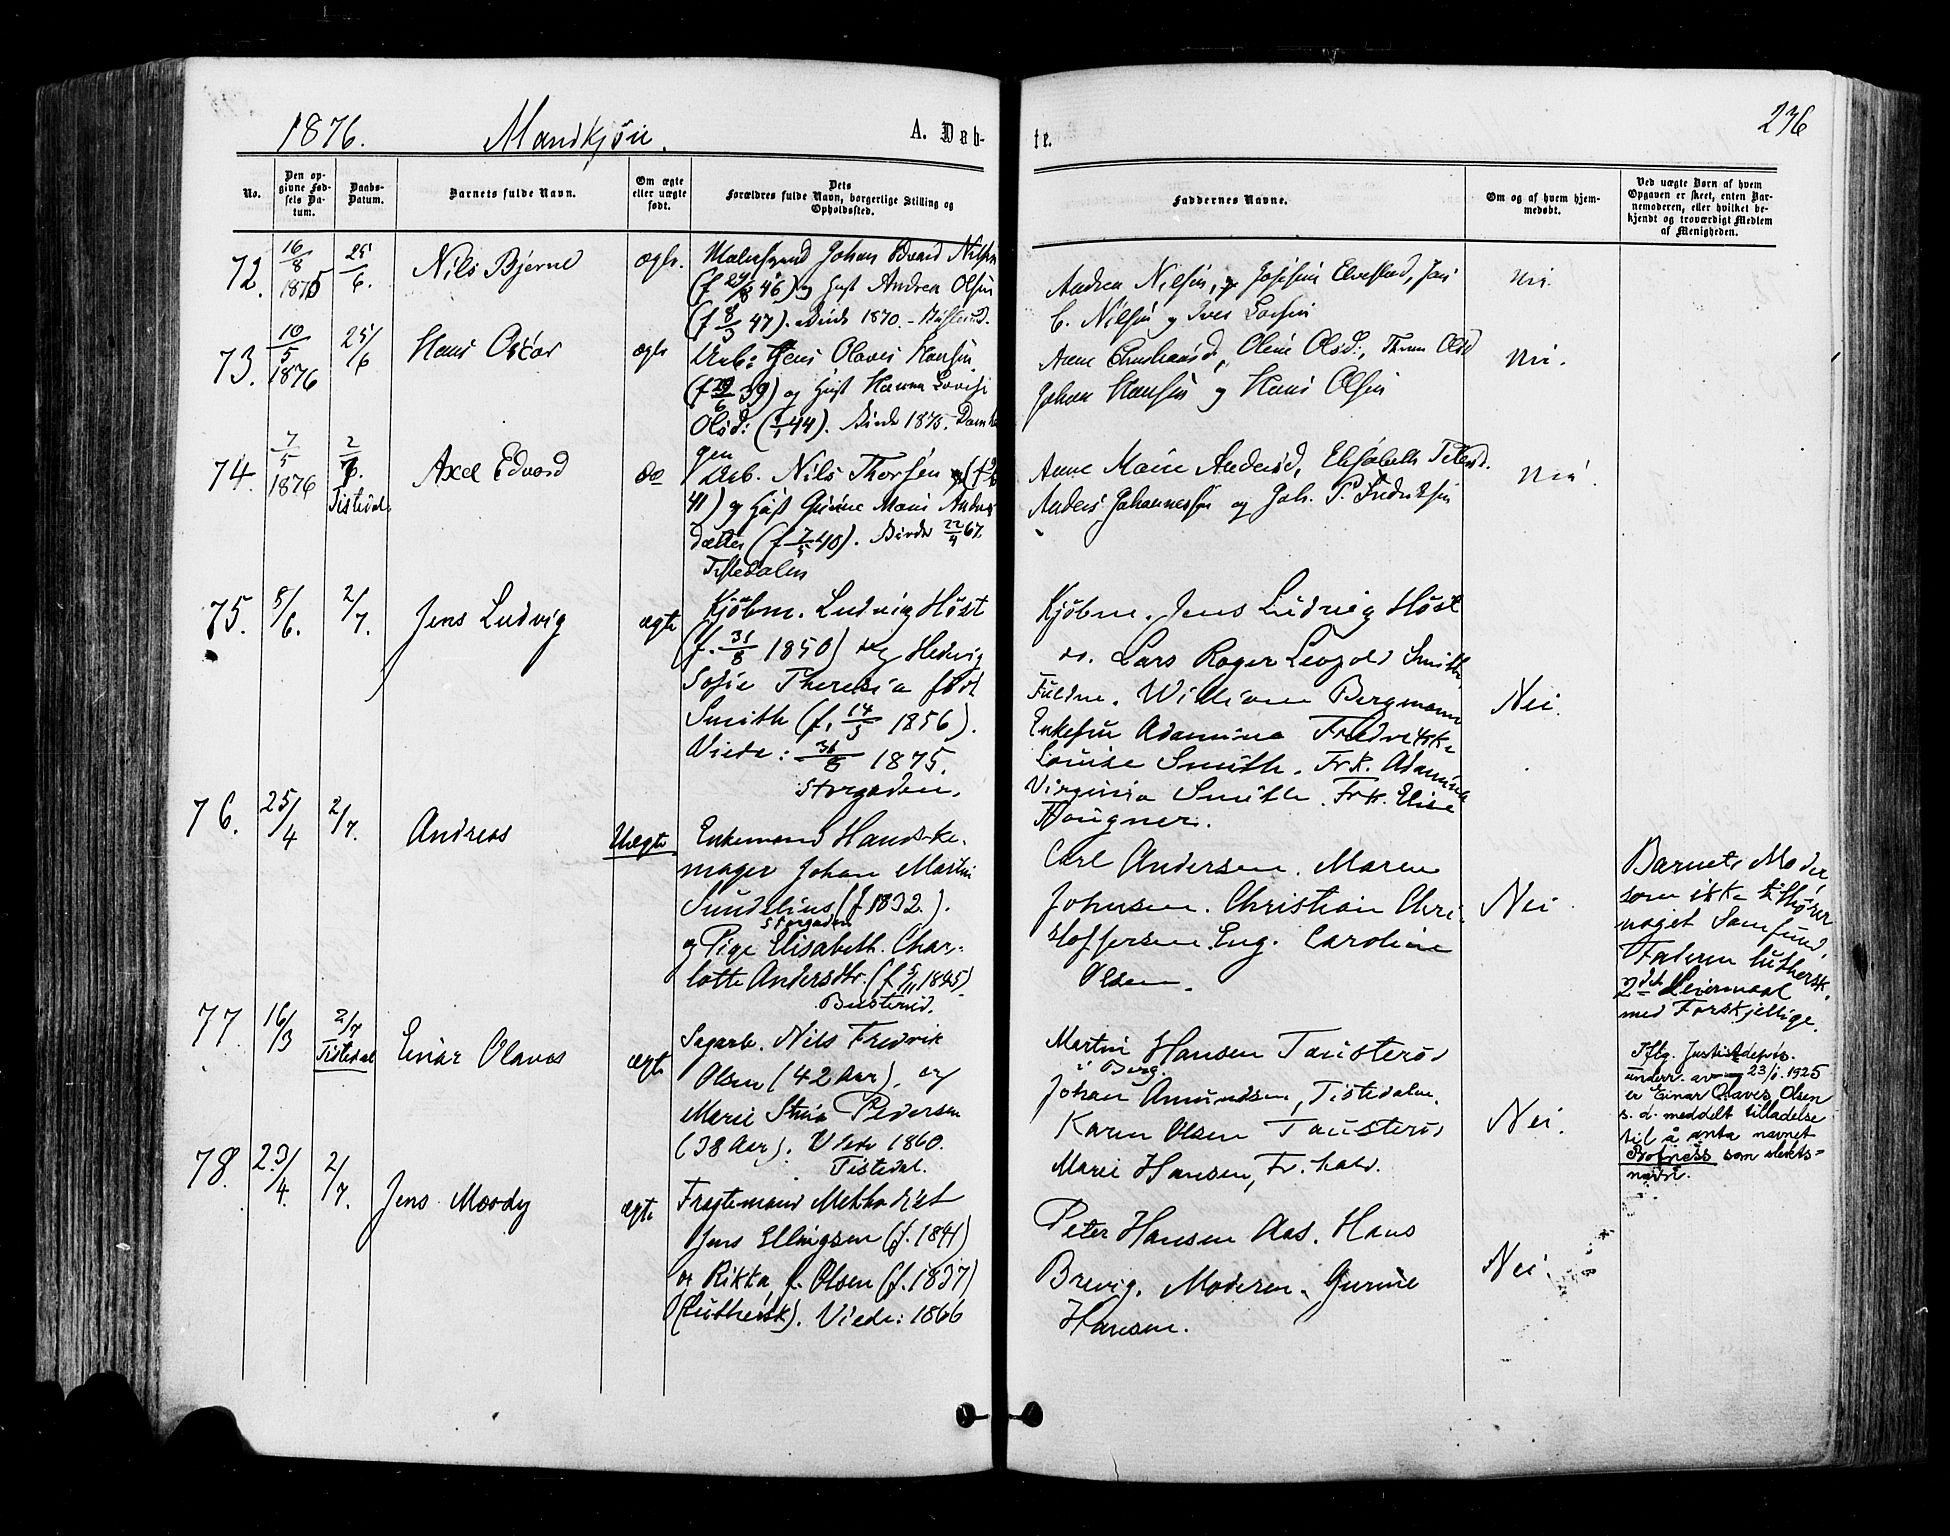 1876. Mandkjön. A. Døb-
te. 236
No.
Den op-
givne Fød-
sels Da-
tum.
Daabs-
Datum.
Barnets fulde Navn.
Om ægte
eller uægte
født.
Dets
Forældres fulde Navn, borgerlige Stilling og
Opholdssted.
Faddernes Navne.
Om og af hvem hjem-
medøbt.
Ved uægte Børn af hvem
Opgaven er skeet, enten Bar-
nemoderen, eller hvilket be-
kjendt og troværdigt Medlem
af Menigheden.
72. 16/8 1875 25/6. Nils Bjerne ægte.
Johan Edvard Nilsen
(f 46) og Hust Andrea Olsen
(f 8/3 47). Viede 1870.
Andrea Nilsen, Elvestad,
C. Nilsen og Iver
Nei.
73. 10/5 1876 25/6 Hans Oskar ægte
Arb: Jens Olaves Hansen
(f 39) og Hust Hanna Lovise
Olsd: (44). Viede 1875.
Olsd:
Johan Hansen og Hans Olsen
Nei.
74. 7/5 1876 2/7. Tistedal. Axel Edvard do
Arb. Nils Thorsen
41) og Hust Marie
datter (f 7/5 40). Viede 22/4 67.
Tistedalen
Anne Marie Andersd, Elisabeth
Anders Johannessen og Joh. P. Fredriksen
Nei
75. 8/6. 2/7. Jens Ludvig ægte
Kjøbm. Ludvig Höst
(f. 31/8 1850) og Hedvig
Sofie Theresia født
Smith (f. 14/3 1856).
Viede: 31/8 1875.
Storgaden.
Kjøbm. Jens Ludvig Höst
do. Lars Roger Leopold Smith,
William Bergmann
Enkefru Adamine Fredrikke
Louise Smith. Frk. Adamine
Virginia Smith. Frk. Elise
Hougner.
Nei.
76. 25/4 2/7. Andreas Uægte
Enkemand Handske-
mager Johan Martin
Sundelius (f 1832.).
Storgaden
og Pige Elisabeth Char-
lotte Andersdtr. (f 5/11 1845)
Busterud.
Carl Andersen. Maren
Johnsen. Christian Chri-
stoffersen. Eng. Caroline
Olsen.
Nei.
Barnets Moder,
som ikke tilhører
noget Samfund,
Faderen luthersk.
2det Leiermaal
med Forskjellige.
77. 16/3 2/7 Tistedal Einar Olaves ægte
Sagarb. Nils Fredrik
Olsen (42 Aar), og
Marie Stina Pedersen
(38 Aar). Viede 1860.
Tistedal.
Martin Hansen Tousterød
i Berg.
Johan Amundsen, Tistedalen.
Karen Olsen Tousterød
Marie Hansen, Fr.hald.
Nei.
Iflg. Justisdeps.
underr. av 23/1. 1925
er Einar Olaves Olsen
s. d. meddelt tilladelse
til å anta navnet
som slekts-
navn.
78. 23/4. 2/7. Jens Moody ægte
Fragtemand Methodist
Jens Ellingsen (f. 1841)
og Rikka f. Olsen (f. 1837)
(Luthersk). Viede: 1866
Peter Hansen Aas. Hans
Brevig. Moderen. Gurine
Hansen.
Nei.